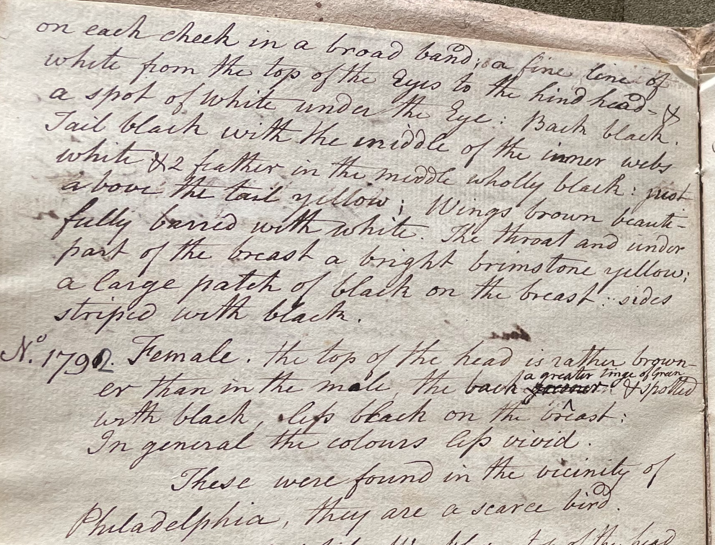 on each cheek in a broad band; a fine line of
white from the top of the Eyes to the hind head - &
a spot of white under the Eye: Back black.
Tail black with the middle of the inner webs
white & 2 feather in the middle wholly black: just
above the tail yellow; Wings brown beauti-
fully barred with white. The throat and under
part of the breast a bright brimstone yellow;
a large patch of black on the breast: sides
striped with black.
No. 1792. Female. the top of the head is rather brown-
a greater tinge of Green
er than in the male, the back & spotted
with black, less black on the breast:
In general the colours less vivid.
These were found in the vicinity of
Philadelphia, they are a scarce bird.
top of the head